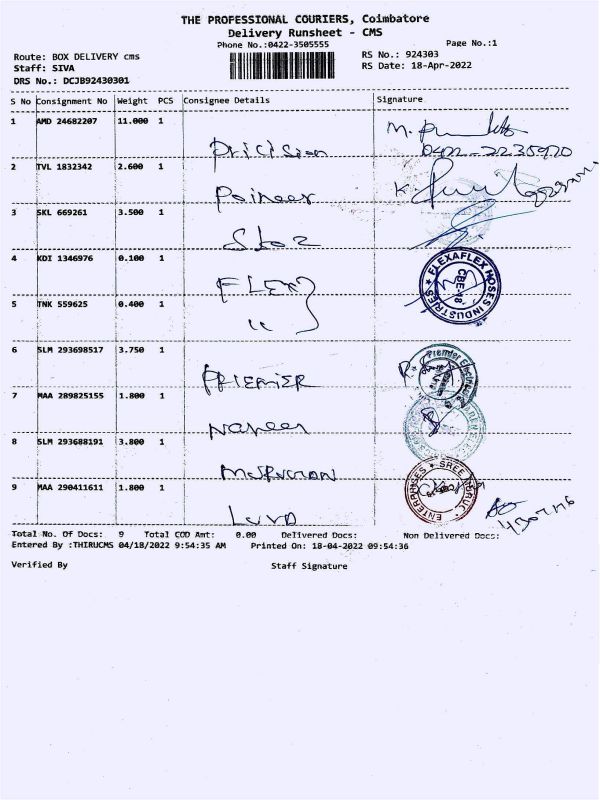 THE PROFESSIONAL COURIERS, Coimbatore
Delivery Runsheet - CMS
Phone No.:0422-3505555
Page No.:1
Route: BOX DELIVERY cms
RS No.: 924303
Staff: SIVA
RS Date: 18-Apr-2022
DRS No.: DCJB92430301
S No Consignment No Weight PCS Consignee Details Signature
1 AMD 24682207 11.000 1
M.
Pricision 0422-2235920
2 TVL 1832342 2.600 1
Poineer K
3 SKL 669261 3.500 1
4 KDI 1346976 0.100 1
FLEXAFLEX HOSES INDUSTRIES CBE-18
FLEX
5 TNK 559625 0.400 1
"
6 SLM 293698517 3.750 1
Premier
PREMIER
7 MAA 289825155 1.800 1
Nareen
8 SLM 293688191 3.800 1
SREE GURU ENTERPRISES
9 MAA 290411611 1.800 1
Total No. Of Docs: 9 Total COD Amt: 0.00 Delivered Docs: Non Delivered Docs:
Entered By :THIRUCMS 04/18/2022 9:54:35 AM Printed On: 18-04-2022 09:54:36
Verified By Staff Signature